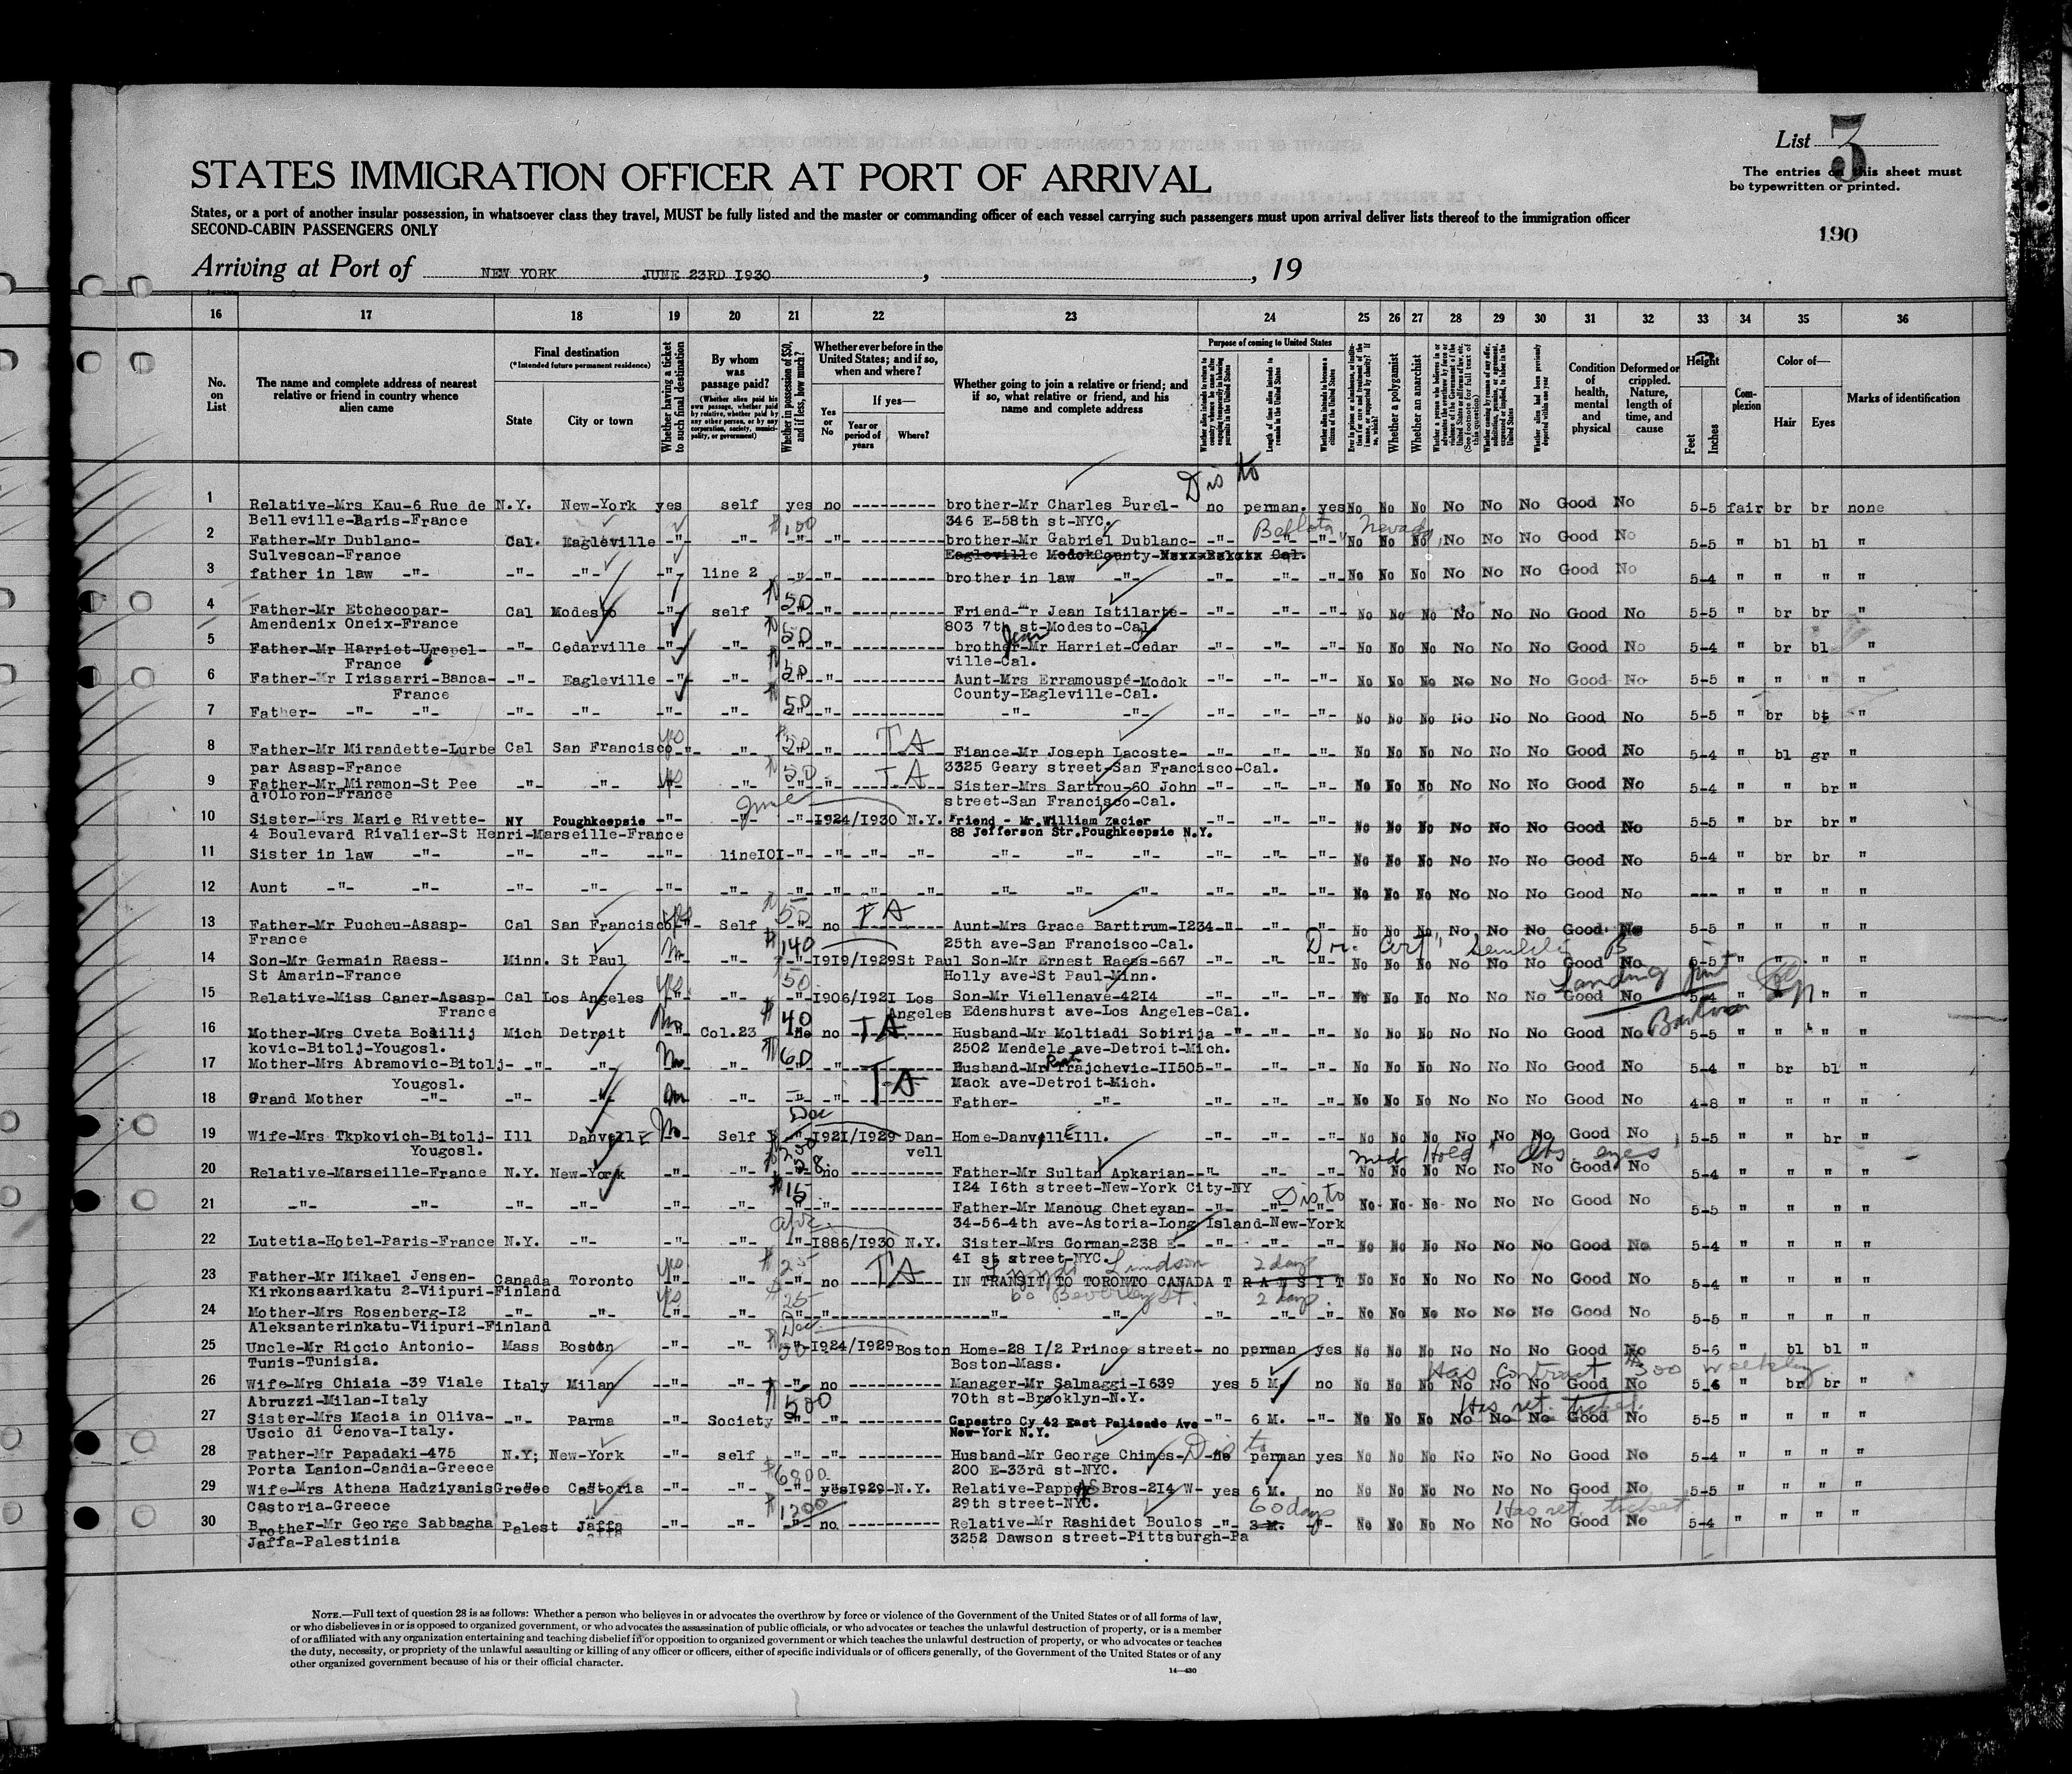 List 3
The entries on this sheet must
be typewritten or printed.
STATES IMMIGRATION OFFICER AT PORT OF ARRIVAL
States, or a port of another insular possession, in whatsoever class they travel, MUST be fully listed and the master or commanding officer of each vessel carrying such passengers must upon arrival deliver lists thereof to the immigration officer
SECOND-CABIN PASSENGERS ONLY
190
Arriving at Port of NEW YORK JUNE 23RD I930, 19
16 17 18 19 20 21 22 23 24 25 26 27 28 29 30 31 32 33 34 35 36
No. on List
The name and complete address of nearest relative or friend in country whence alien came
Final destination
(*Intended future permanent residence)
State City or town
Whether having a ticket to such final destination
By whom was passage paid?
(Whether alien paid his own passage, whether paid by relative, whether paid by any other person, or by any corporation, society, municipality, or government)
Whether in possession of $50, and if less, how much?
Whether ever before in the United States; and if so, when and where?
Yes or No
If yes—
Year or period of years
Where?
Whether going to join a relative or friend; and if so, what relative or friend, and his name and complete address
Purpose of coming to United States
Length of time alien intends to remain in the United States
Whether alien intends to become a citizen of the United States
Whether a polygamist
Whether an anarchist
Condition of health, mental and physical
Deformed or crippled. Nature, length of time, and cause
Height
Feet Inches
Complexion
Color of—
Hair Eyes
Marks of identification
Dis to
1 Relative-Mrs Kau-6 Rue de N.Y. New-York yes self yes no ---------- brother-Mr Charles Burel- no perman. yes No No No No No No Good No 5-5 fair br br none
Belleville-Paris-France $100 346 E-58th st-NYC. Nevada
2 Father-Mr Dublanc- Cal. Eagleville -"- -"- -"- -"- --------- brother-Mr Gabriel Dublanc- -"- -"- -"- No No No No No No Good No 5-5 " bl bl "
Sulvescan-France Eagleville ModokCounty- Cal.
3 father in law -"- -"- -"- -"- line 2 -"- -"- --------- brother in law -"- -"- -"- -"- No No No No No No Good No 5-4 " " " "
4 Father-Mr Etchecopar- Cal Modesto -"- self 50 -"- ---------- Friend-"r Jean Istilarte- -"- -"- -"- No No No No No No Good No 5-5 " br br "
Amendenix Oneix-France 803 7th st-Modesto-Cal.
5 Father-Mr Harriet-Urepel- -"- Cedarville -"- -"- 50 -"- ---------- brother-Mr Jean Harriet-Cedar -"- -"- -"- No No No No No No Good No 5-4 " br bl "
France ville-Cal.
6 Father-Mr Irissarri-Banca- -"- Eagleville -"- -"- 50 -"- ---------- Aunt-Mrs Erramouspé-Modok -"- -"- -"- No No No No No No Good No 5-5 " " " "
France County-Eagleville-Cal.
7 Father- -"- -"- -"- -"- -"- -"- 50 -"- ---------- -"- -"- -"- -"- -"- No No No No No No Good No 5-5 " br "
8 Father-Mr Mirandette-Lurbe Cal San Francisco yes -"- 50 -"- TA Fiance-Mr Joseph Lacoste- -"- -"- -"- No No No No No No Good No 5-4 " bl gr "
par Asasp-France 3325 Geary street-San Francisco-Cal.
9 Father-Mr Miramon-St Pee -"- -"- yes -"- 50 -"- TA Sister-Mrs Sartrou-60 John -"- -"- -"- No No No No No No Good No 5-4 " " br "
d'Oloron-France street-San Francisco-Cal.
10 Sister-Mrs Marie Rivette- NY Poughkeepsie -"- -"- June -"- I924/I930 N.Y. Friend - Mr.William Zacier -"- -"- -"- No No No No No No Good No 5-5 " br br "
4 Boulevard Rivalier-St Henri-Marseille-France 88 Jefferson Str.Poughkeepsie N.Y.
11 Sister in law -"- -"- -"- -"- lineIOI -"- -"- -"- -"- -"- -"- -"- -"- -"- -"- No No No No No No Good No 5-4 " br br "
12 Aunt -"- -"- -"- -"- -"- -"- -"- -"- -"- -"- -"- -"- -"- -"- -"- -"- No No No No No No Good No --- " " " "
13 Father-Mr Pucheu-Asasp- Cal San Francisco yes Self 50 no TA Aunt-Mrs Grace Barttrum-I234 -"- -"- -"- No No No No No No Good No 5-5 " " " "
France 25th ave-San Francisco-Cal. Dr. Cert
14 Son-Mr Germain Raess- Minn. St Paul No -"- $140 -"- I9I9/I929 St Paul Son-Mr Ernest Raess-667 -"- -"- -"- No No No No No No Good No 5-5 " " " "
St Amarin-France Holly ave-St Paul-Minn.
15 Relative-Miss Caner-Asasp- Cal Los Angeles yes -"- 50 -"- I906/I92I Los Son-Mr Viellenave-42I4 -"- -"- -"- No No No No No No Good No 5-4 " " "
France Angeles Edenshurst ave-Los Angeles-Cal.
16 Mother-Mrs Cveta Boailij Mich Detroit No Col.23 $40 no TA Husband-Mr Moltiadi Sobirija -"- -"- -"- No No No No No No Good No 5-5 " " "
kovic-Bitolj-Yougosl. 2502 Mendele ave-Detroit-Mich.
17 Mother-Mrs Abramovic-Bitolj- -"- -"- No -"- $60 -"- TA Husband-Mr Trajchevic-II505 -"- -"- -"- No No No No No No Good No 5-4 " br bl "
Yougosl. Mack ave-Detroit-Mich.
18 Grand Mother -"- -"- -"- No -"- -"- -"- ---------- Father- -"- -"- -"- -"- No No No No No No Good No 4-8 " " " "
Dec
19 Wife-Mrs Tkpkovich-Bitolj- Ill Danville No Self -"- I92I/I929 Dan- Home-Danville Ill. -"- -"- -"- No No No No No No Good No 5-5 " " br "
Yougosl. vell med Hold eyes
20 Relative-Marseille-France N.Y. New-York -"- -"- 28 no ---------- Father-Mr Sultan Apkarian- -"- -"- -"- No No No No No No Good No 5-4 " " " "
I24 I6th street-New-York City-NY Dis to
21 -"- -"- -"- -"- -"- -"- $15 -"- ---------- Father-Mr Manoug Cheteyan- -"- -"- -"- No No No No No No Good No 5-5 " " " "
34-56-4th ave-Astoria-Long Island-New-York
22 Lutetia-Hotel-Paris-France N.Y. -"- -"- -"- -"- I886/I930 N.Y. Sister-Mrs Gorman-238 E- -"- -"- -"- No No No No No No Good No 5-4 " " " "
4I st street-NYC. 2 days
23 Father-Mr Mikael Jensen- Canada Toronto yes -"- 25 no TA IN TRANSIT TO TORONTO CANADA T R A N S I T No No No No No No Good No 5-4 " " " "
Kirkonsaarikatu 2-Viipuri-Finland 60 Beverley St.
24 Mother-Mrs Rosenberg-I2 -"- -"- yes -"- 25 -"- ---------- -"- -"- 2 days. -"- No No No No No No Good No 5-5 " " " "
Aleksanterinkatu-Viipuri-Finland Dec
25 Uncle-Mr Riccio Antonio- Mass Boston -"- -"- -"- I924/I929 Boston Home-28 I/2 Prince street- no perman yes No No No No No No Good No 5-6 " bl bl "
Tunis-Tunisia. Boston-Mass. Has Contract $300 weekly
26 Wife-Mrs Chiaia -39 Viale Italy Milan -"- -"- -"- no ---------- Manager-Mr Salmaggi-I639 yes 5 M. no No No No No No No Good No 5-6 " br br "
Abruzzi-Milan-Italy $500 70th st-Brooklyn-N.Y. Has ret. ticket.
27 Sister-Mrs Macia in Oliva- -"- Parma -"- Society -"- -"- ---------- Capestro Cy 42 East Palisade Ave -"- 6 M. -"- No No No No No No Good No 5-5 " " " "
Uscio di Genova-Italy. New-York N.Y.
28 Father-Mr Papadaki-475 N.Y; New-York -"- self -"- -"- ---------- Husband-Mr George Chimes- Dis to no perman yes No No No No No No Good No 5-4 " " " "
Porta Lanion-Candia-Greece $6800 200 E-33rd st-NYC.
29 Wife-Mrs Athena Hadziyanis Greece Castoria -"- -"- -"- yes I929-N.Y. Relative-Pappas Bros-2I4 W- yes 6 M. no No No No No No No Good No 5-5 " " " "
Castoria-Greece $1200 29th street-NYC. 60 days Has ret. ticket
30 Brother-Mr George Sabbagha Palest Jaffa -"- -"- -"- no. ---------- Relative-Mr Rashidet Boulos -"- 3 M. -"- No No No No No No Good No 5-4 " " " "
Jaffa-Palestinia 3252 Dawson street-Pittsburgh-Pa
NOTE.—Full text of question 28 is as follows: Whether a person who believes in or advocates the overthrow by force or violence of the Government of the United States or of all forms of law,
or who disbelieves in or is opposed to organized government, or who advocates the assassination of public officials, or who advocates or teaches the unlawful destruction of property, or is a member
of or affiliated with any organization entertaining and teaching disbelief in or opposition to organized government or which teaches the unlawful destruction of property, or who advocates or teaches
the duty, necessity, or propriety of the unlawful assaulting or killing of any officer or officers, either of specific individuals or of officers generally, of the Government of the United States or of any
other organized government because of his or their official character.
14—430